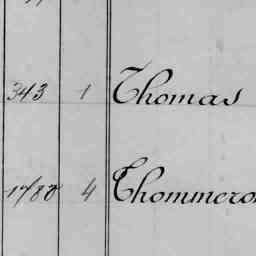 343 1 Thomas
1788 4 Thommero